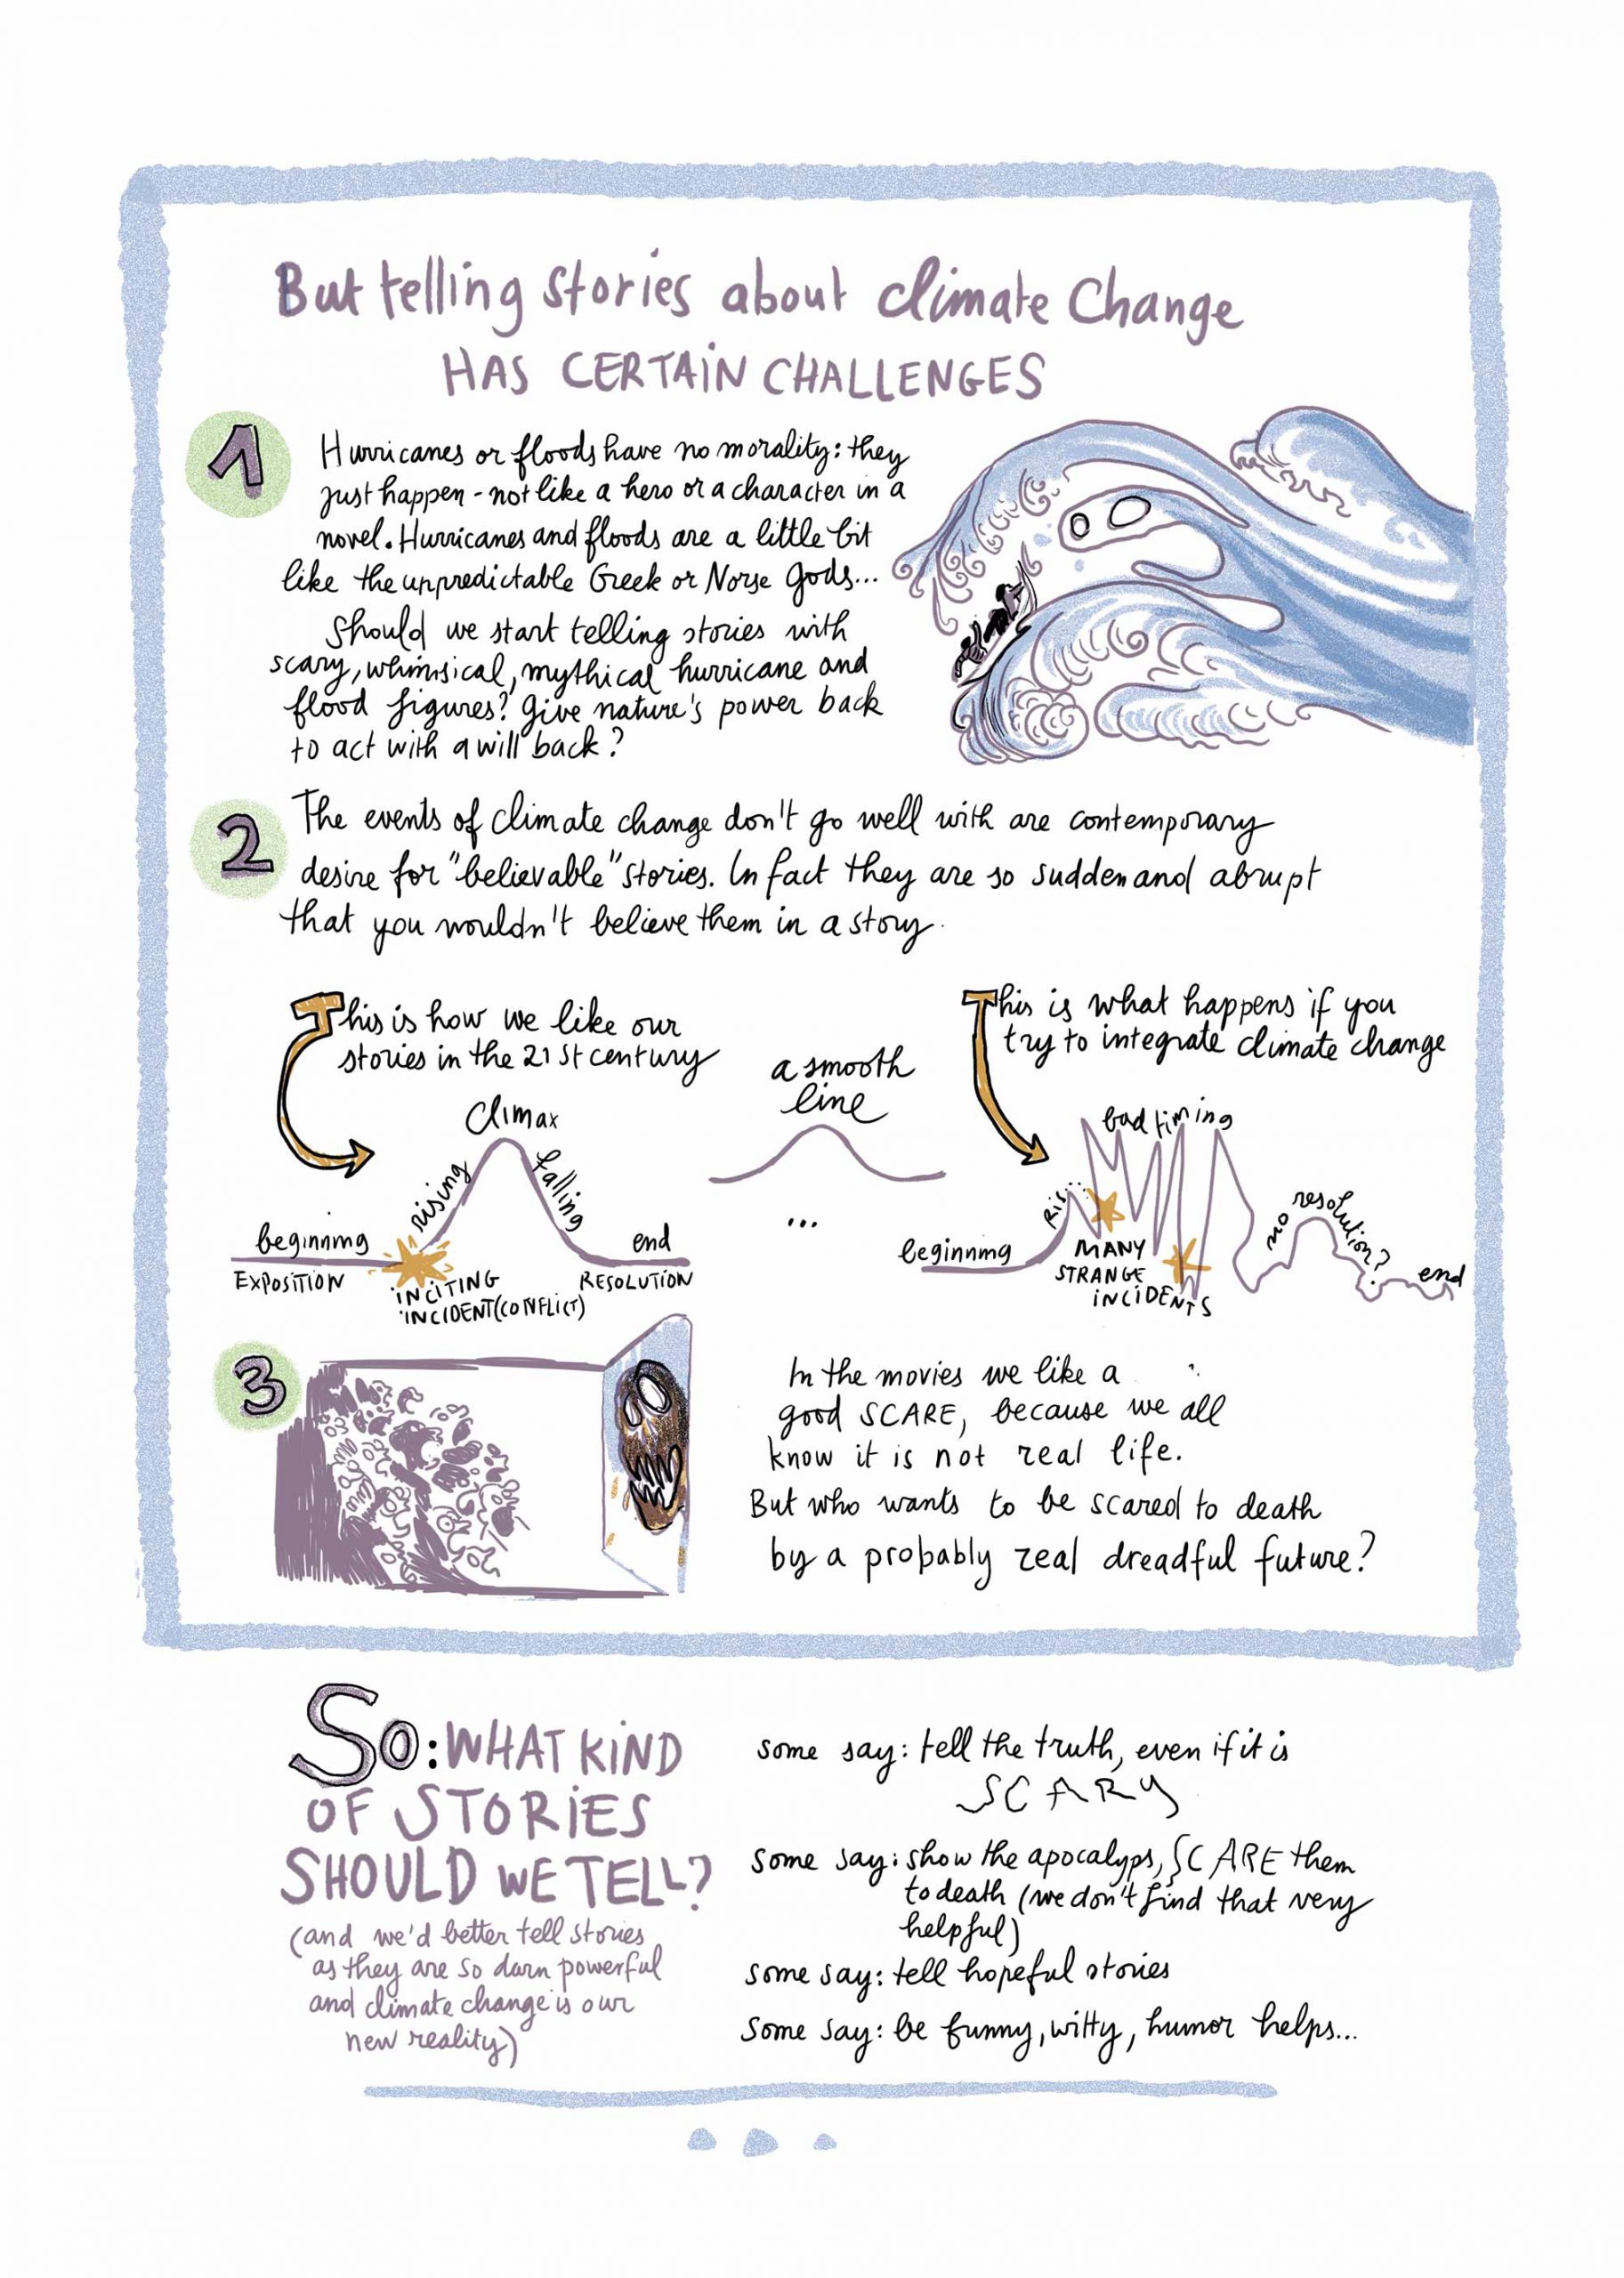 But telling stories about climate Change
HAS CERTAIN CHALLENGES
1
Hurricanes or floods have no morality: they
just happen - not like a hero or a character in a
novel. Hurricanes and floods are a little bit
like the unpredictable Greek or Norse gods...
Should we start telling stories with
scary, whimsical, mythical hurricane and
flood figures? Give nature's power back
to act with a will back?
2
The events of climate change don't go well with are contemporary
desire for "believable" stories. In fact they are so sudden and abrupt
that you wouldn't believe them in a story.
This is how we like our
stories in the 21st century
climax
rising
falling
beginning
end
EXPOSITION
INCITING
INCIDENT (CONFLICT)
RESOLUTION
a smooth
line
...
This is what happens if you
try to integrate climate change
bad timing
Ris...
beginning
MANY
STRANGE
INCIDENTS
no resolution?
end
3
In the movies we like a
good SCARE, because we all
know it is not real life.
But who wants to be scared to death
by a probably real dreadful future?
So: WHAT KIND
OF STORIES
SHOULD WE TELL?
(and we'd better tell stories
as they are so darn powerful
and climate change is our
new reality)
some say: tell the truth, even if it is
SCARY
some say: show the apocalyps, SCARE them
to death (we don't find that very
helpful)
some say: tell hopeful stories
Some say: be funny, witty, humor helps...